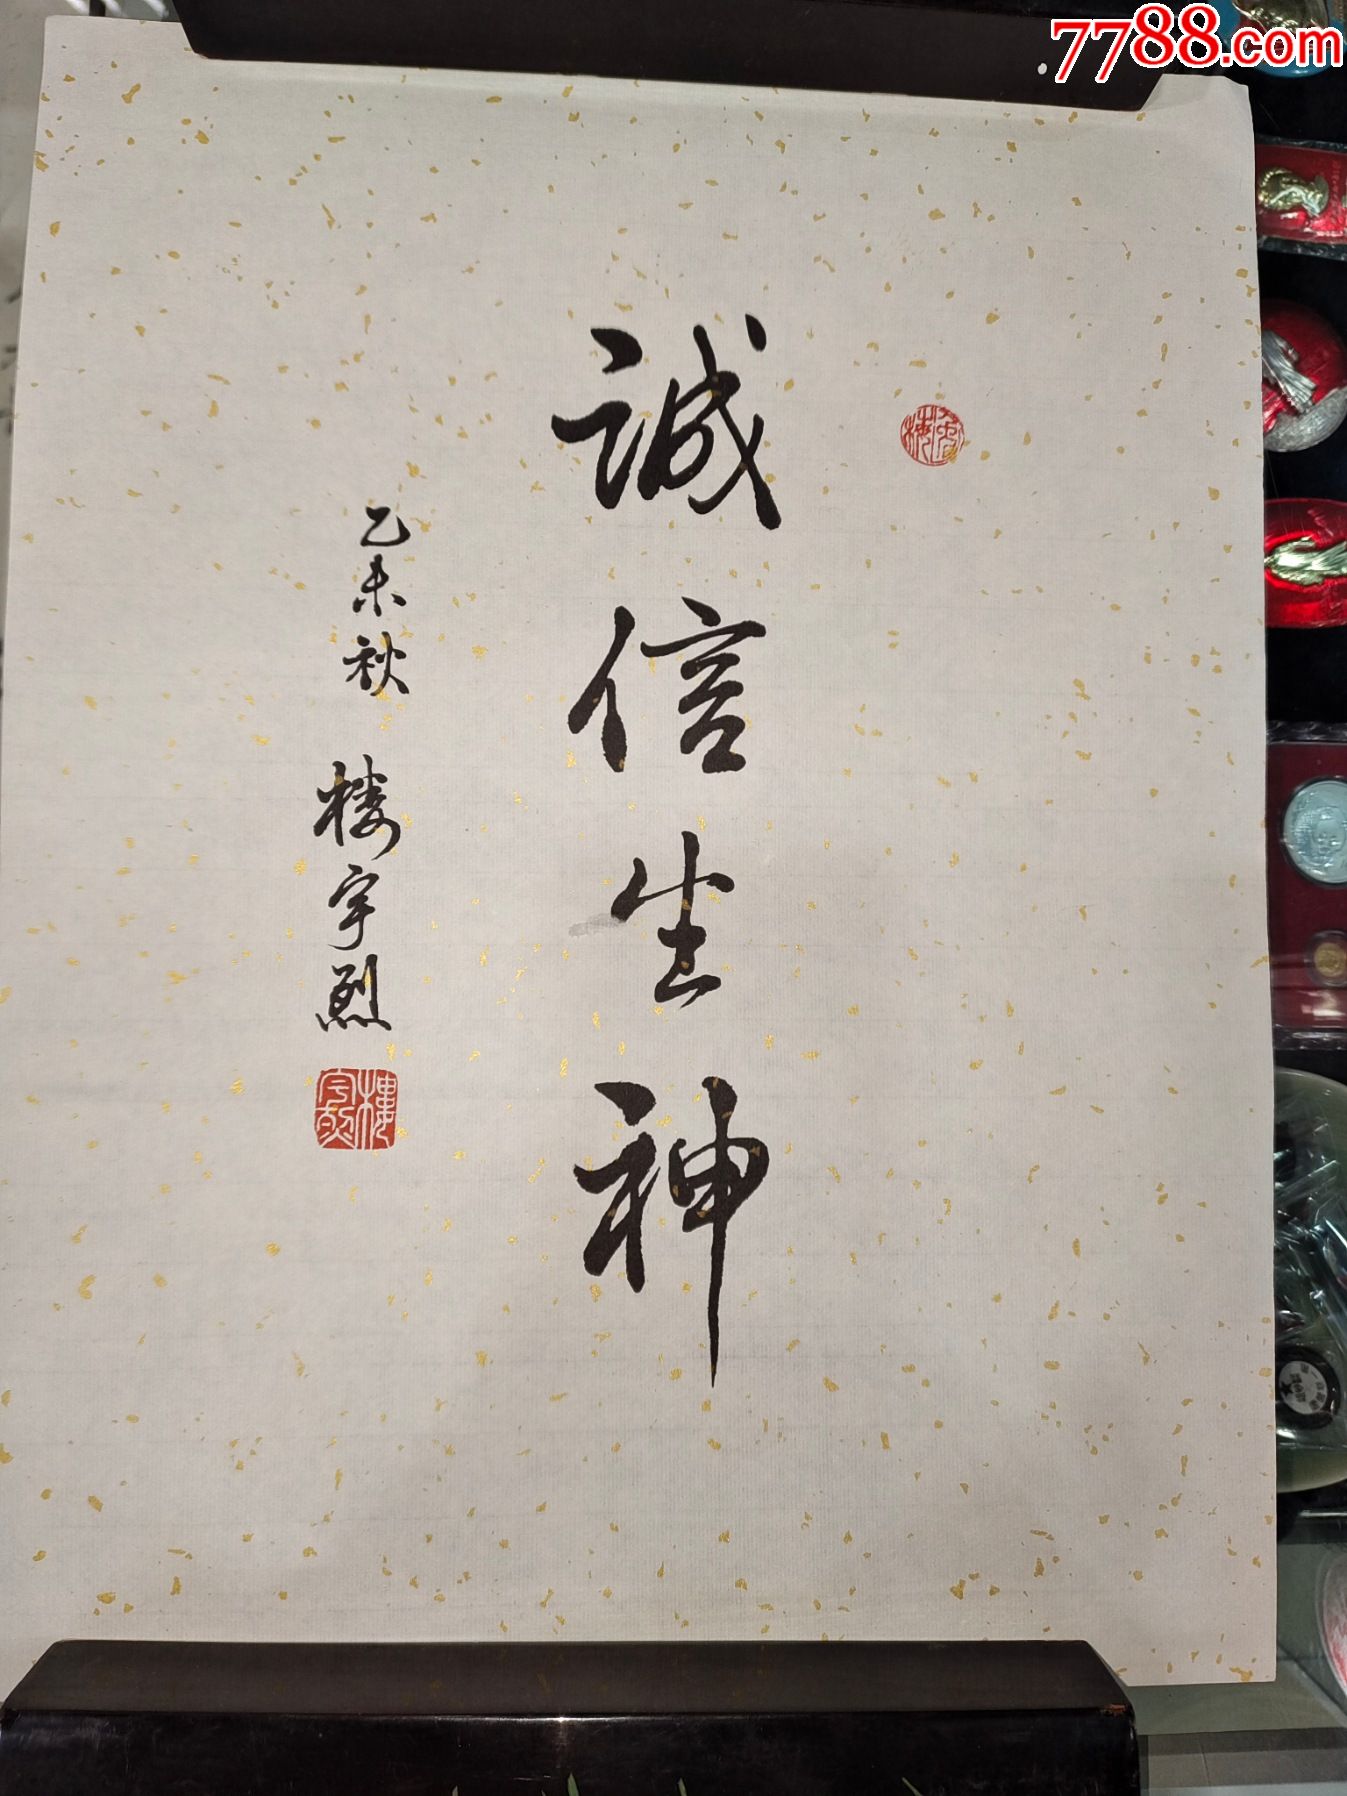 7788.com
誠信生神
乙未秋 楼宇烈
樓宇烈